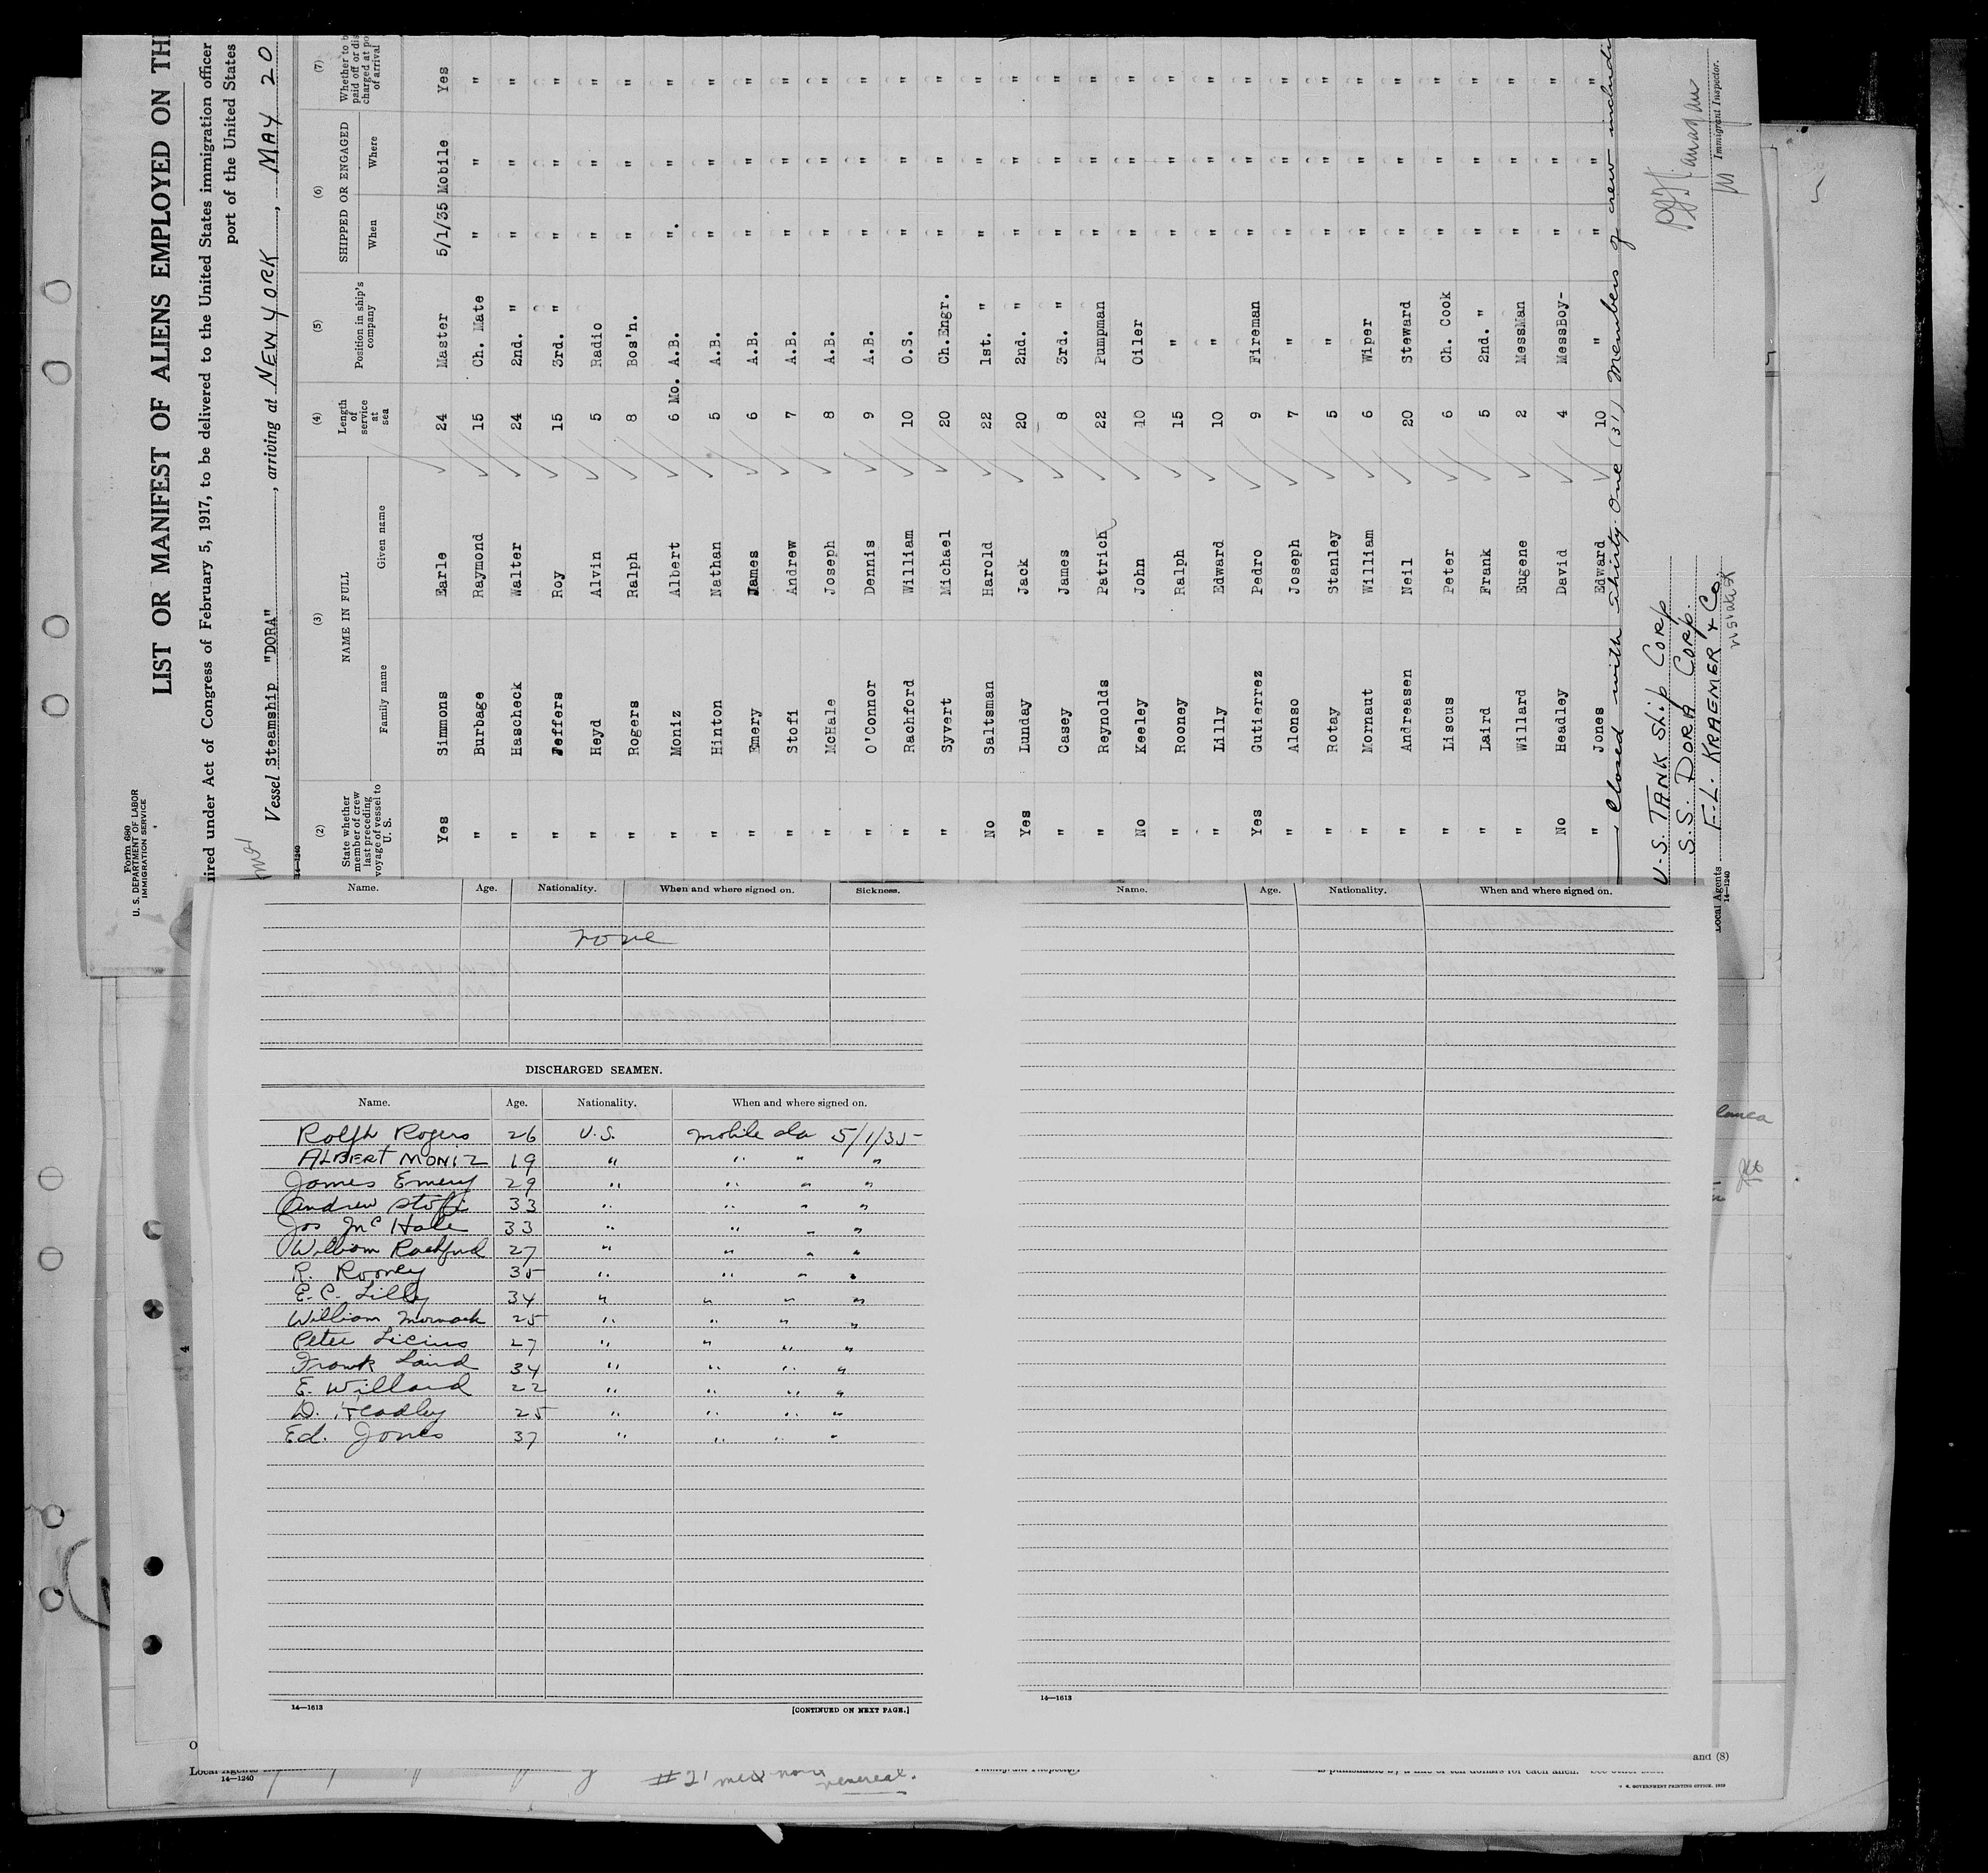 Form 680
U. S. DEPARTMENT OF LABOR
IMMIGRATION SERVICE
LIST OR MANIFEST OF ALIENS EMPLOYED ON TH
ired under Act of Congress of February 5, 1917, to be delivered to the United States immigration officer
port of the United States
Vessel Steamship "DORA", arriving at NEW YORK, MAY 20
14—1240
(2) (3) (4) (5) (6) (7)
State whether member of crew last preceding voyage of vessel to U. S.
NAME IN FULL
Family name Given name
Length of service at sea
Position in ship's company
SHIPPED OR ENGAGED
When Where
Whether to b paid off or dis charged at po of arrival
Yes Simmons Earle 24 Master 5/1/35 Mobile Yes
" Burbage Raymond 15 Ch. Mate " " "
" Hascheck Walter 24 2nd. " " " "
" Jeffers Roy 15 3rd. " " " "
" Heyd Alvin 5 Radio " " "
" Rogers Ralph 8 Bos'n. " " "
" Moniz Albert 6 Mo. A.B. " " "
" Hinton Nathan 5 A.B. " " "
" Emery James 6 A.B. " " "
" Stofi Andrew 7 A.B. " " "
" McHale Joseph 8 A.B. " " "
" O'Connor Dennis 9 A.B. " " "
" Rachford William 10 O.S. " " "
" Syvert Michael 20 Ch.Engr. " " "
No Saltsman Harold 22 1st. " " " "
Yes Lunday Jack 20 2nd. " " " "
" Casey James 8 3rd. " " " "
" Reynolds Patrick 22 Pumpman " " "
No Keeley John 10 Oiler " " "
" Rooney Ralph 15 " " " "
" Lilly Edward 10 " " " "
Yes Gutierrez Pedro 9 Fireman " " "
" Alonso Joseph 7 " " " "
" Rotay Stanley 5 " " " "
" Mornaut William 6 Wiper " " "
" Andreasen Neil 20 Steward " " "
" Liscus Peter 6 Ch. Cook " " "
" Laird Frank 5 2nd. " " " "
" Willard Eugene 2 MessMan " " "
No Headley David 4 MessBoy- " " "
" Jones Edward 10 " " " "
Closed with thirty one (31) Members of crew includi
U.S. TANK Ship CORP
S.S. DORA CORP.
Local Agents E.L. KRAEMER & Co.
14—1240
Immigrant Inspector.
Name. Age. Nationality. When and where signed on. Sickness.
none
DISCHARGED SEAMEN.
Name. Age. Nationality. When and where signed on.
Rolph Rogers 26 U.S. Mobile Ala 5/1/35
ALBERT MONIZ 19 " " " "
James Emery 29 " " " "
Andrew Stofi 33 " " " "
Jos McHale 33 " " " "
William Rachford 27 " " " "
R. Rooney 35 " " " "
E.C. Lilly 34 " " " "
William 25 " " " "
Peter 27 " " " "
Frank Laird 34 " " " "
E. Willard 22 " " " "
D. Headley 25 " " " "
Ed. Jones 37 " " " "
14—1613 [CONTINUED ON NEXT PAGE.]
Name. Age. Nationality. When and where signed on.
14—1613
and (8)
Local Agents
14—1240
#21
venereal.
U. S. GOVERNMENT PRINTING OFFICE